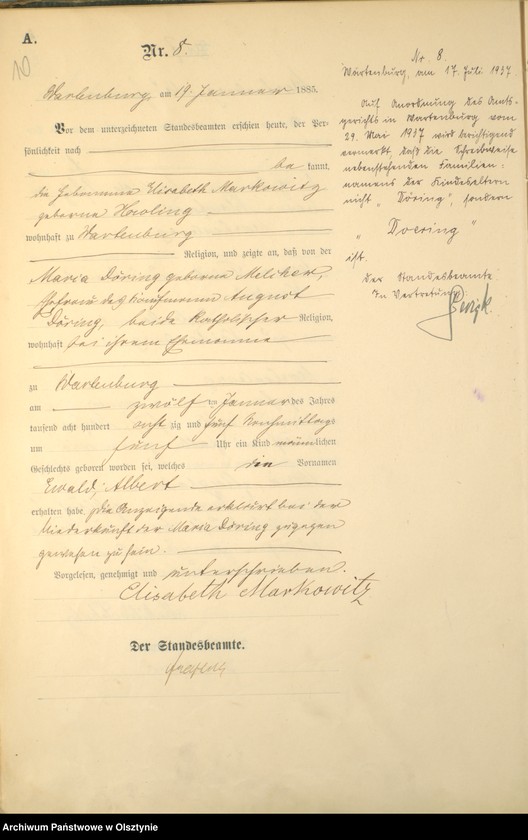 A.
10
Nr. 8.
Wartenburg, am 19. Januar 1885.
Vor dem unterzeichneten Standesbeamten erschien heute, der Per-
sönlichkeit nach
be kannt,
die Hebamme Elisabeth Markowitz
geborne
wohnhaft zu Wartenburg
Religion, und zeigte an, daß von der
Maria Döring geborne
Ehefrau des Kaufmanns August
Döring, beide katholischer Religion,
wohnhaft bei ihrem Ehemanne
zu Wartenburg
am zwölften Januar des Jahres
tausend acht hundert acht zig und fünf Nachmittags
um fünf Uhr ein Kind männlichen
Geschlechts geboren worden sei, welches den Vornamen
Ewald, Albert
erhalten habe. Die Anzeigende erklärt bei der
Niederkunft der Maria Döring zugegen
gewesen zu sein.
Vorgelesen, genehmigt und unterschrieben.
Elisabeth Markowitz
Der Standesbeamte.
Nr. 8.
Wartenburg, am 17. Juli 1937.
Auf Anordnung des Amts-
gerichts in Wartenburg vom
29. Mai 1937 wird berichtigend
vermerkt, daß die Schreibweise
nebenstehenden Familien-
namens der Kindeseltern
nicht „Döring", sondern
„Doering"
ist.
Der Standesbeamte
In Vertretung
Archiwum Państwowe w Olsztynie